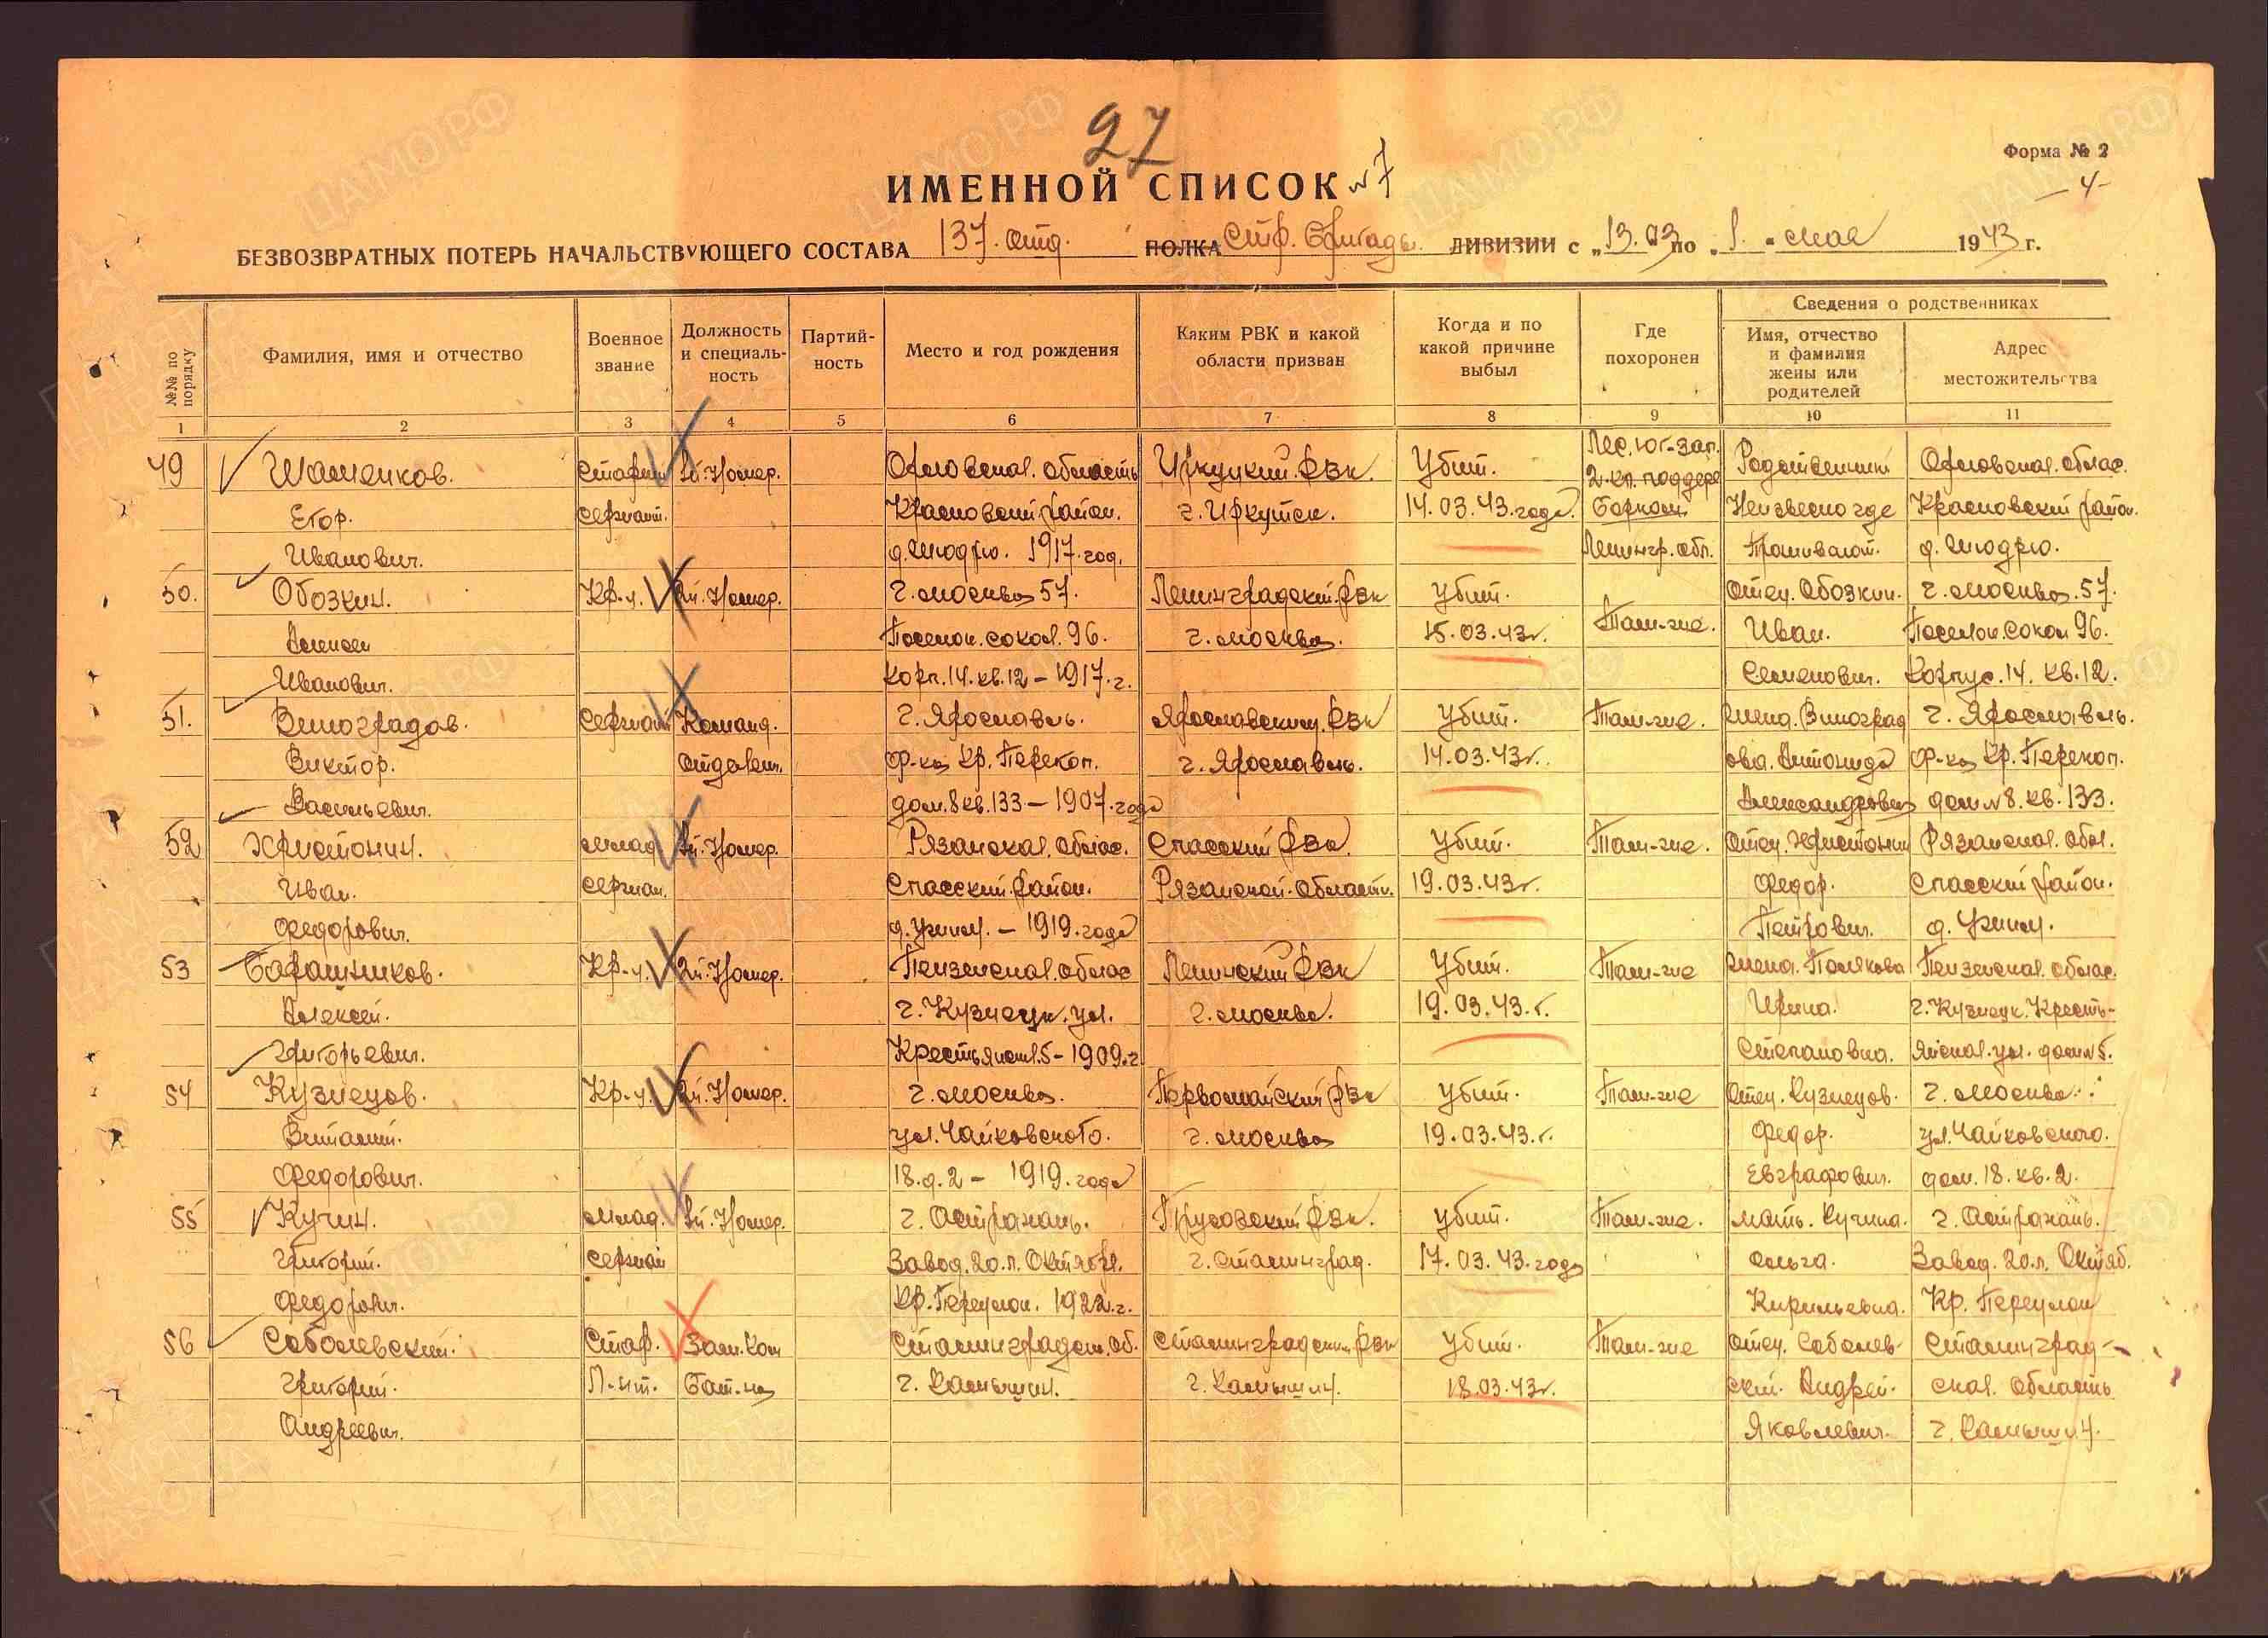 27
Форма № 2
ИМЕННОЙ СПИСОК №7
-4-
БЕЗВОЗВРАТНЫХ ПОТЕРЬ НАЧАЛЬСТВУЮЩЕГО СОСТАВА 137. отд. ПОЛКА стр. бригады. ДИВИЗИИ с „13.03 по „1." мая 1943 г.
№№ по порядку
Фамилия, имя и отчество
Военное звание
Должность и специаль-ность
Партий-ность
Место и год рождения
Каким РВК и какой области призван
Когда и по какой причине выбыл
Где похоронен
Сведения о родственниках
Имя, отчество и фамилия жены или родителей
Адрес местожительства
1 2 3 4 5 6 7 8 9 10 11
49 Шаменков. Старши 1й. Номер. Орловская. область Иркуцкий. РВК. Убит. Лес. юг-зап. 2-кп. поддере Родственники Орловская. облас.
Егор. сержант. Красновский район. г. Иркутск. 14.03.43. года. Борком Неизвесно где Красновский район.
Иванович. 1917. год. Ленингр. обл. Проживают.
50. Обозкин. Кр-ц. 2й. Номер. г. Москва 57. Ленинградский. РВК Убит. отец. Обозкин. г. Москва. 57.
Алексей Поселок. сокол. 96. г. Москва. 15.03.43г. Там-же. Иван. Поселок. сокол 96.
Иванович. Корп. 14. кв. 12 - 1917. г. Семенович. Корпус. 14. кв. 12.
51. Виноградов. Сержант Команд. г. Ярославль. Ярославский. РВК Убит. Там-же. жена. Виноград г. Ярославль.
Виктор. отделен. Ф-ка Кр. Перекоп. г. Ярославль. 14.03.43г. ова. Антонида Ф-ка Кр. Перекоп.
Васильевич. дом. 8 кв. 133 - 1907. года Александровна дом №8. кв. 133.
52 Христонин. млад. 1й. Номер. Рязанская. облас. Спасский РВК. Убит. Там-же. отец. Христонин Рязанская. обл.
Иван. сержан. Спасский район. Рязанской. области. 19.03.43г. Федор. Спасский район.
Федорович. - 1919. года Петрович.
53 Барашников. Кр-ц. 2й. Номер. Пензенская. облас Ленинский РВК Убит. Там-же жена. Полякова Пензенская. облас.
Алексей. г. Кузнецк. ул. г. Москва. 19.03.43. г. Ирина. г. Кузнецк. Кресть-
Григорьевич. Крестьянск. 5 - 1909. г Степановна. янская. ул. дом №5.
54 Кузнецов. Кр-ц. 2й. Номер. г. Москва. Первомайский РВК Убит. Там-же отец. Кузнецов. г. Москва.
Виталий. ул. Чайковского. г. Москва 19.03.43. г. Федор. ул. Чайковского.
Федорович. 18. д. 2 - 1919. года Евграфович. дом. 18. кв. 2.
55 Кучин. млад. 1й. Номер. г. Астрахань. Трусовский РВК. Убит. Там-же. мать. Кучина. г. Астрахань.
Григорий. сержан Завод. 20. л. Октября. г. Сталинград. 17.03.43. года Ольга. Завод. 20. л. Октяб.
Федорович. Кр. Переулок. 1922. г. Кирильевна. Кр. Переулок
56 Соболевский. Стар. Зам. Ком Сталинградск. об. Сталинградский РВК Убит. Там-же отец. Соболев- Сталинград-
Григорий. Л-нт. Бат-на г. Камышин. г. Камышин. 18.03.43г. ский. Андрей. ская. область
Андреевич. Яковлевич. г. Камышин.